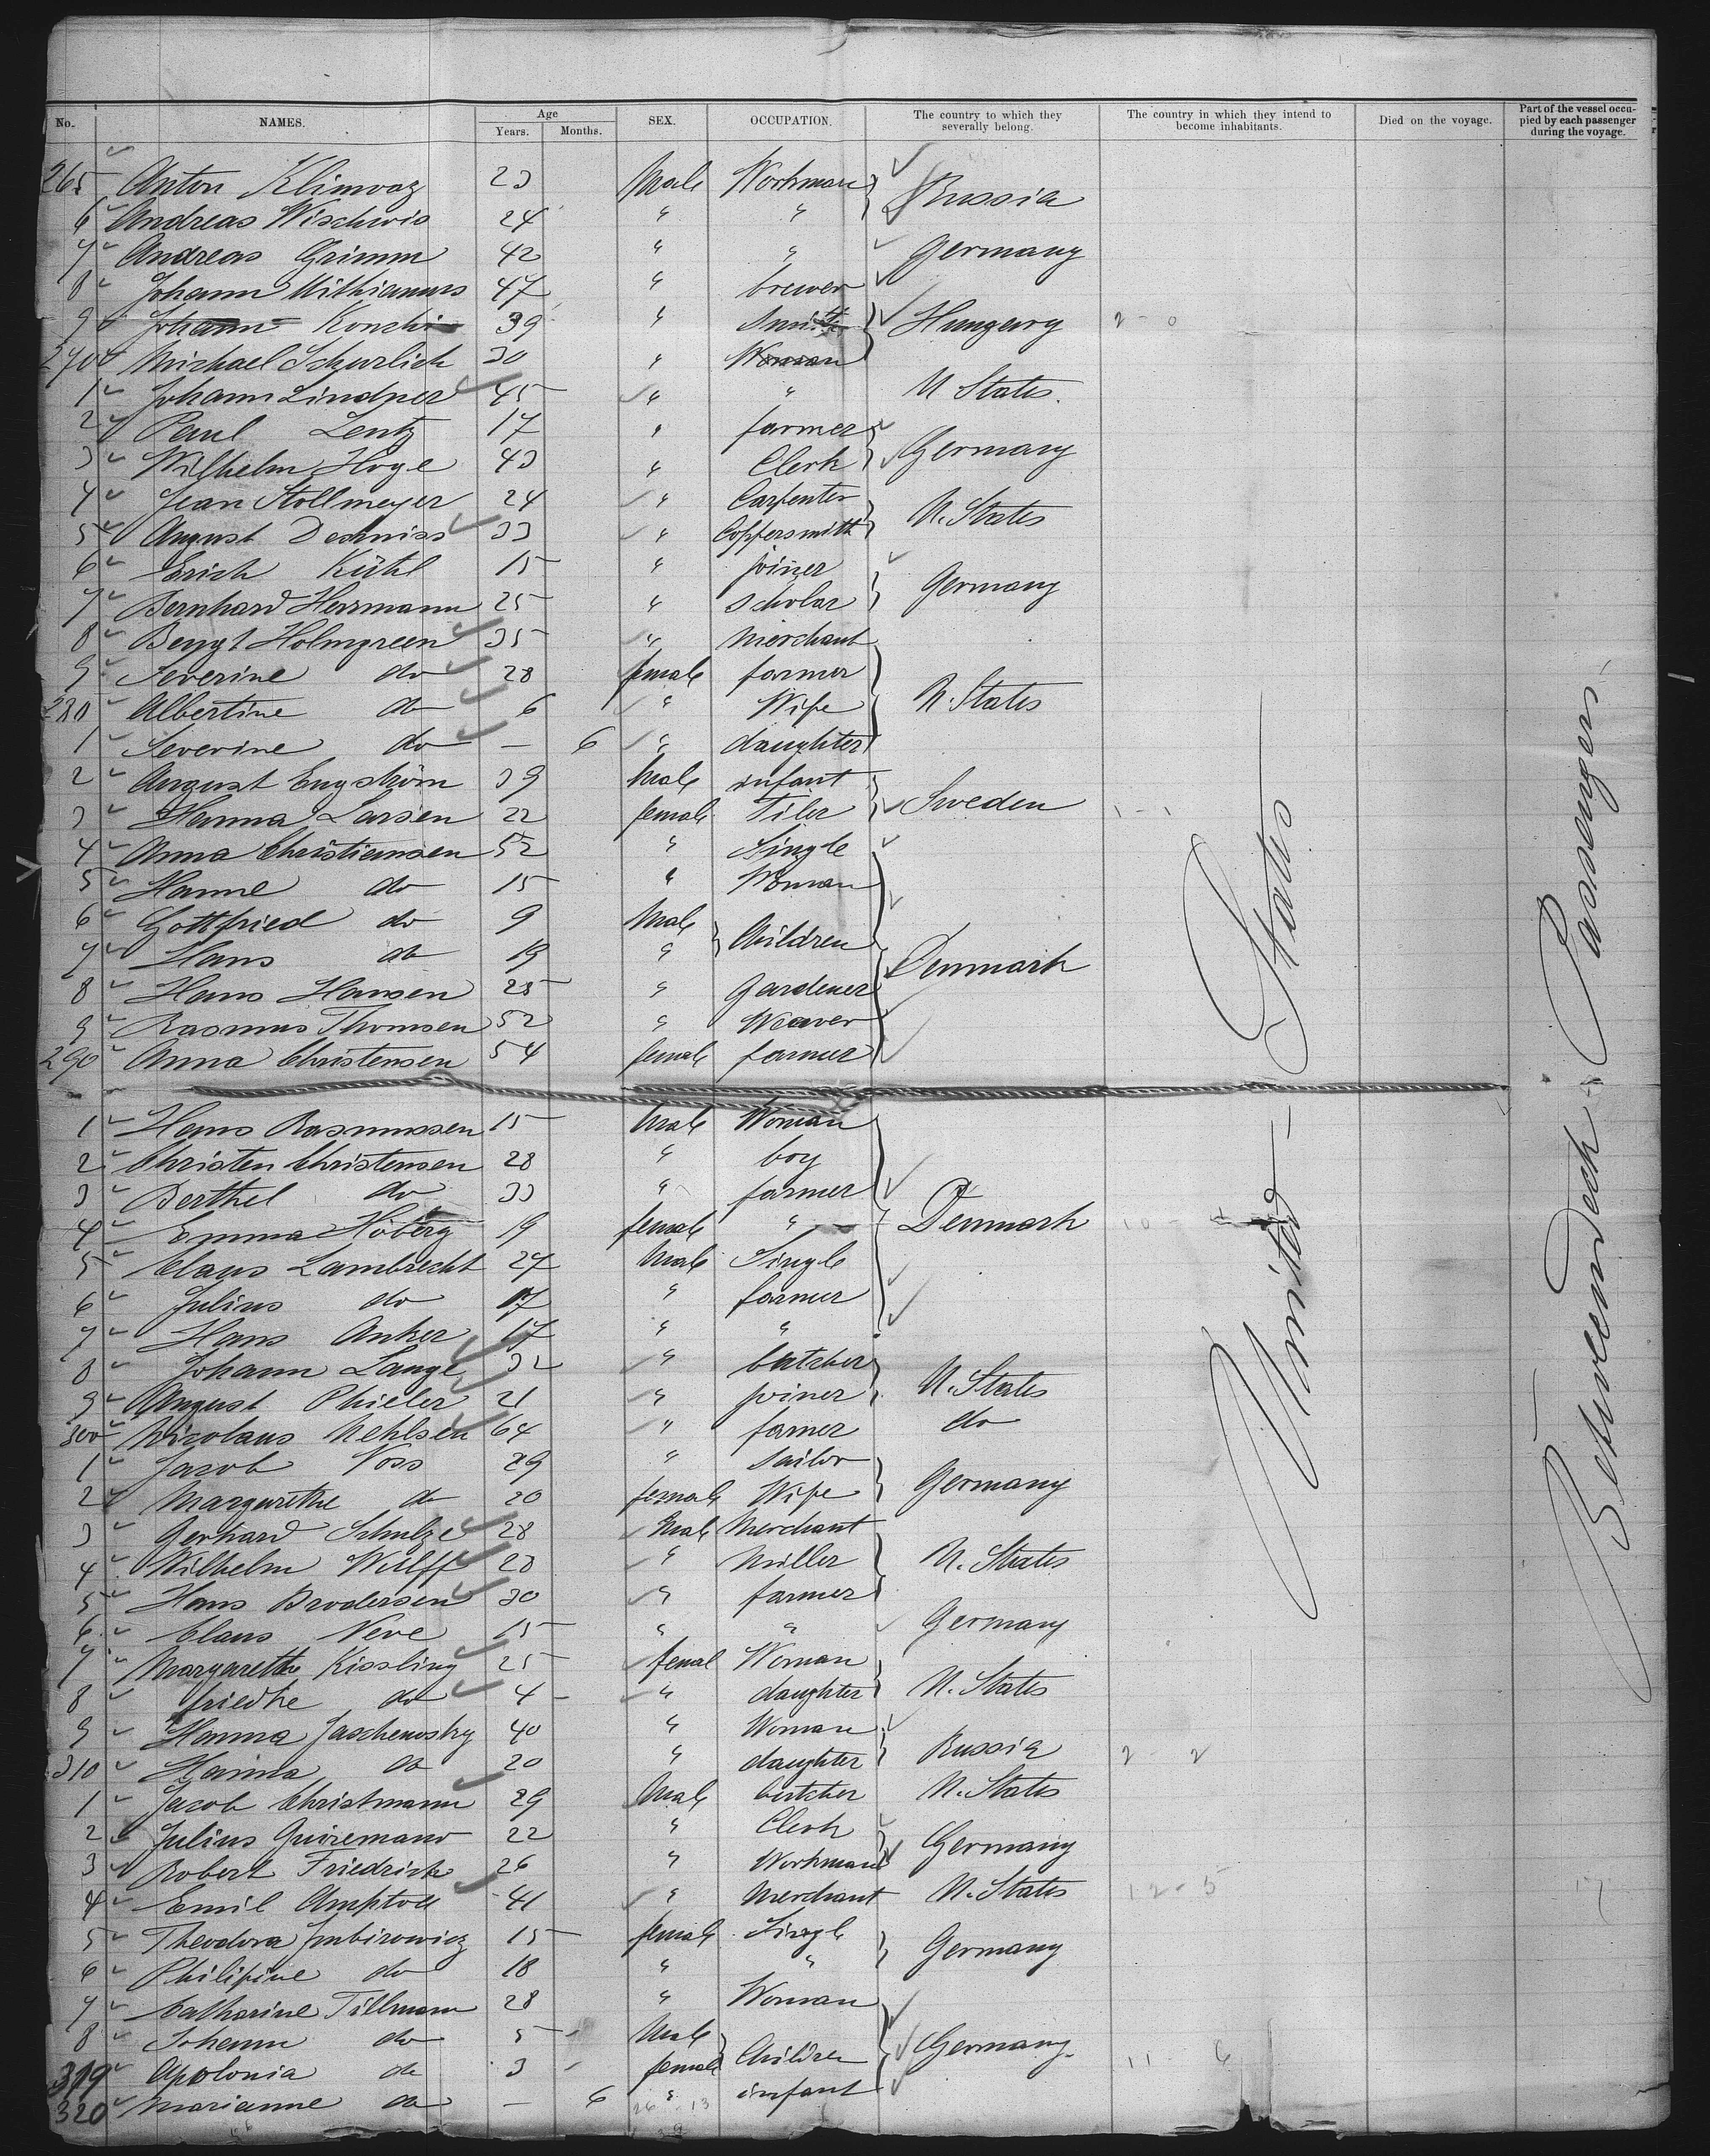 No. NAMES. Age Years. Months. SEX. OCCUPATION. The country to which they severally belong. The country in which they intend to become inhabitants. Died on the voyage. Part of the vessel occupied by each passenger during the voyage.
265 Anton Klimvaz 23 Male Workman Russia
6 Andreas Wischwis 24 " "
7 Andreas Grimm 42 " " Germany
8 Johann 47 " brewer
9 Johann 39 " Smith Hungary 2 - 0
270 Michael Schurlich 30 " Woman
1 Johann Lindner 45 " " U States.
2 Paul Lentz 17 " farmer Germany
3 Wilhelm Hoge 43 " Clerk
4 Jean Stollmeyer 24 " Carpenter U. States
5 August 33 " Coppersmith
6 Erich Kühl 15 " joiner Germany
7 Bernhard Herrmann 25 " Scholar
8 Bengt Holmgreen 35 " Merchant
9 Severine do 28 female farmer U. States
280 Albertine do 6 " Wife
1 Severine do — 6 " daughter
2 August Engström 39 Male infant Sweden 1 - 1
3 Hanna Larsen 22 female Tiler
4 Anna Christiansen 52 " Single
5 Hanne do 15 " Woman
6 Gottfried do 9 Male Children Denmark
7 Hans do 19 "
8 Hans Hansen 25 " Gardener
9 Rasmus Thomsen 52 " Weaver
290 Anna Christensen 54 female farmer
1 Hans Rasmussen 15 Male Woman
2 Christen Christensen 28 " boy
3 Berthel do 33 " farmer Denmark
4 Emma Höberg 19 female "
5 Claus Lambrecht 27 Male Single
6 Julius do 17 " farmer
7 Hans Anker 17 " "
8 Johann Lange 32 " butcher U. States
9 August Phieler 21 " joiner
300 Nicolaus Nehlsen 64 " famer do
1 Jacob Voss 29 " Sailor Germany
2 Margarethe do 20 female Wife
3 Gerhard Schulze 28 Male Merchant U. States
4 Wilhelm Wulff 23 " Miller
5 Hans Brodersen 30 " farmer
6 Claus Neve 15 " " Germany
7 Margarethe Kissling 25 femal Woman U. States
8 friedke do 4 " daughter
9 Hanna Jaschenosky 40 " Woman Russia 2 - 2
310 Hanna do 20 " daughter
1 Jacob Christmann 29 Male butcher U. States
2 Julius 22 " Clerk Germany
3 Robert Friedrich 26 " Workman
4 Emil 41 " Merchant U. States 12 - 5
5 Theodora Imbirowicz 15 female Single Germany
6 Philipine do 18 " "
7 Catharine Tillmann 28 " Woman
8 Johann do 5 Male Children Germany. 11 - 6
319 Apolonia do 3 female
320 Marianne do — 6 " infant
26 - 13
United States
Betweendeck Passengers